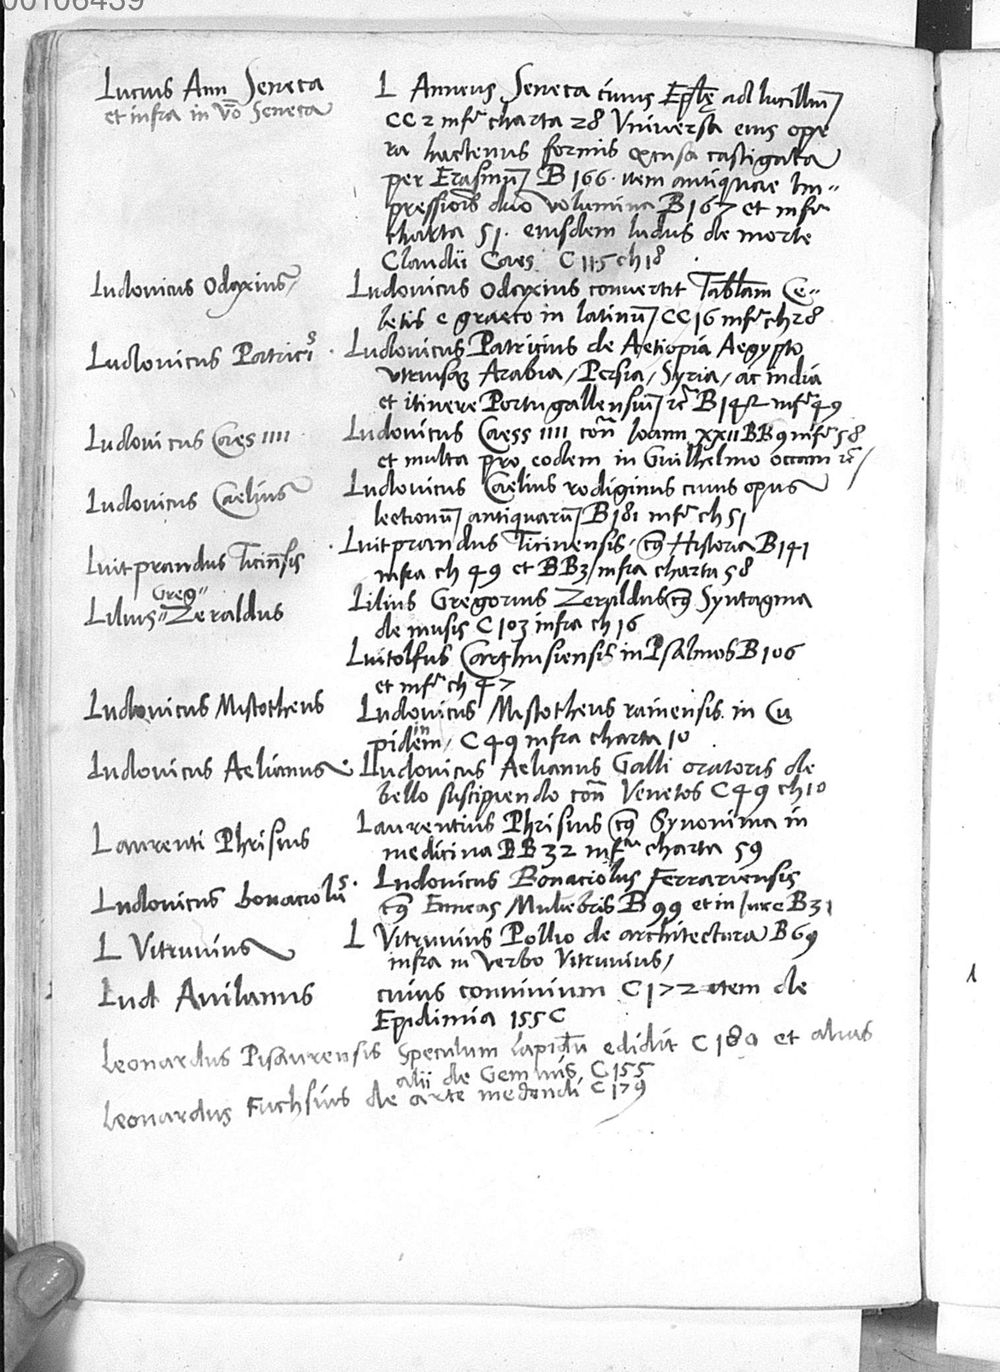 00106439
Lucius Ann Seneca
et infra in vo Seneca
L Anneus Seneca cuius Epłę ad lucilliu
CC 2 infr charta 28 Vniversa eius ope
ra hactenus formis excusa castigata
per Erasmu B 166. item antiquae Im-
pressiois duo volumina B 167 et infr
charta 51. eiusdem ludus de morte
Claudii Caes. C 115 ch 18
Ludovicus Odaxius
Ludovicus Odaxius convertit Tabłam Ce-
betis e graeco in latinu CC 16 infr ch 28
Ludovicus Patrici9
Ludovicus Patricius de Aetiopia Aegypto
utriusq Arabia, Persia, Syria, ac india
et itinere Portugallensiu B 142 infr 49
Ludovicus Caes IIII
Ludovicus Caess IIII con Ioann XXII BB 9 infr 58
et multa pro eodem in Guilhelmo occam
Ludovicus Caelius
Ludovicus Caelius rodiginus cuius opus
lectionu antiquaru B 181 infr ch 51
Luitprandus Ticinesis
Luitprandus Ticinensis, Historia B 141
infra ch 49 et BB 3 infra charta 58
Greg
Lilius Zeraldus
Lilius Gregorius Zeraldus Syntagma
de musis C 103 infra ch 16
Luitolfus Carthusiensis in Psalmos B 106
et infr ch 47
Ludovicus Mistotheus
Ludovicus Mistotheus rainensis in Cu
pidem, C 49 infra charta 10
Ludovicus Aelianus
Ludovicus Aelianus Galli oratoris de
bello suscipiendo con Venetos C 49 ch 10
Laurenti Phrisius
Laurentius Phrisius Synonima in
medicina BB 32 infra charta 59
Ludovicus bonaciolus
Ludovicus Bonaciolus Ferrariensis
Enneas Muliebris B 99 et in Jure B 31
L Vitruvius
L Vitruvius Pollio de architectura B 69
infra in verbo Vitruvius
Lud Avilanus
cuius convivium C 172 item de
Epidimia 155 C
Leonardus Pisaurensis Speculum lapidu edidit C 189 et alias
alii de Gemmis C 155
Leonardus Fuchsius de arte medendi C 179
1